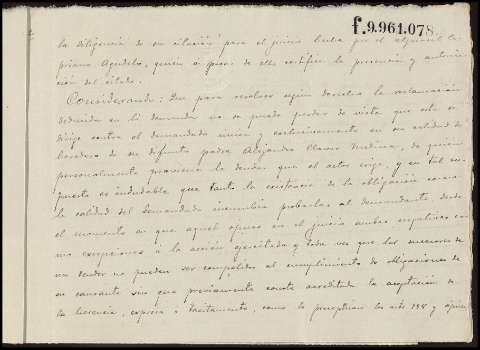 f.9.961.078
la diligencia de su citación para el juicio hecha por el alguacil Ci-
priano Agudelo, quien á quien de ello certifica la presencia y
ción del citado.
Considerando: Que para resolver según derecho la reclamación
deducida en la demanda no se puede perder de vista que esta se
dirige contra el demandado única y exclusivamente en su calidad de
heredero de su difunto padre Alejandro Claver Medina, de quien
personalmente provenia la deuda que el actor exige, y en tal su-
puesto es indudable que tanto la existencia de la obligación como
la calidad del demandado incumbia probarlas al demandante desde
el momento en que aquel opuso en el juicio ambas negativas co-
mo excepciones á la acción ejercitada y toda vez que los sucesores de
un deudor no pueden ser compelidos al cumplimiento de obligaciones de
su causante sin que previamente conste acreditada la aceptación de
la herencia, expresa ó tacitamente, como lo preceptúan los arts 998 y